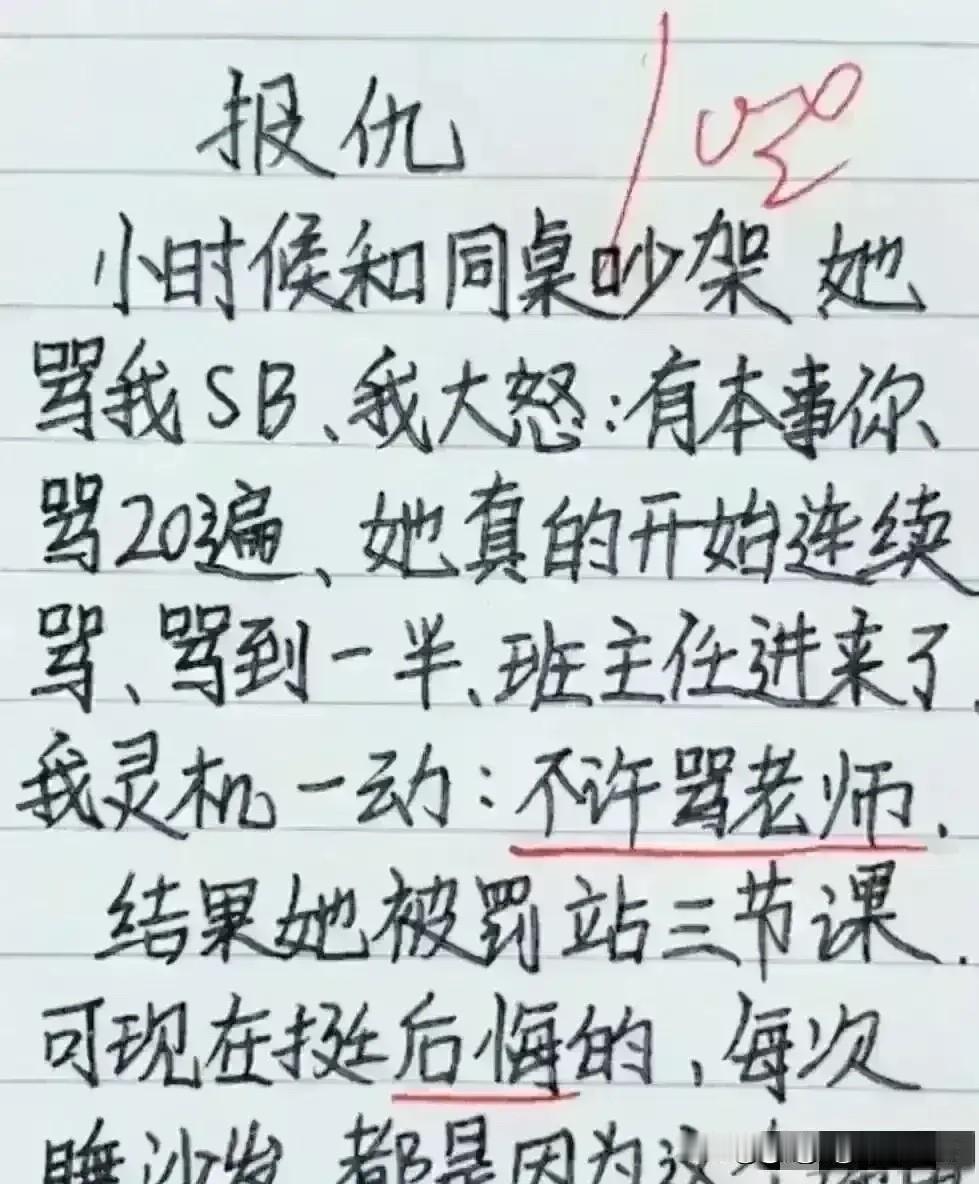 报仇
100
小时候和同桌吵架 她
骂我SB、我大怒:有本事你、
骂20遍、她真的开始连续
骂、骂到一半、班主任进来了、
我灵机一动:不许骂老师.
结果她被罚站三节课.
可现在挺后悔的,每次
睡沙发 都是因为这个